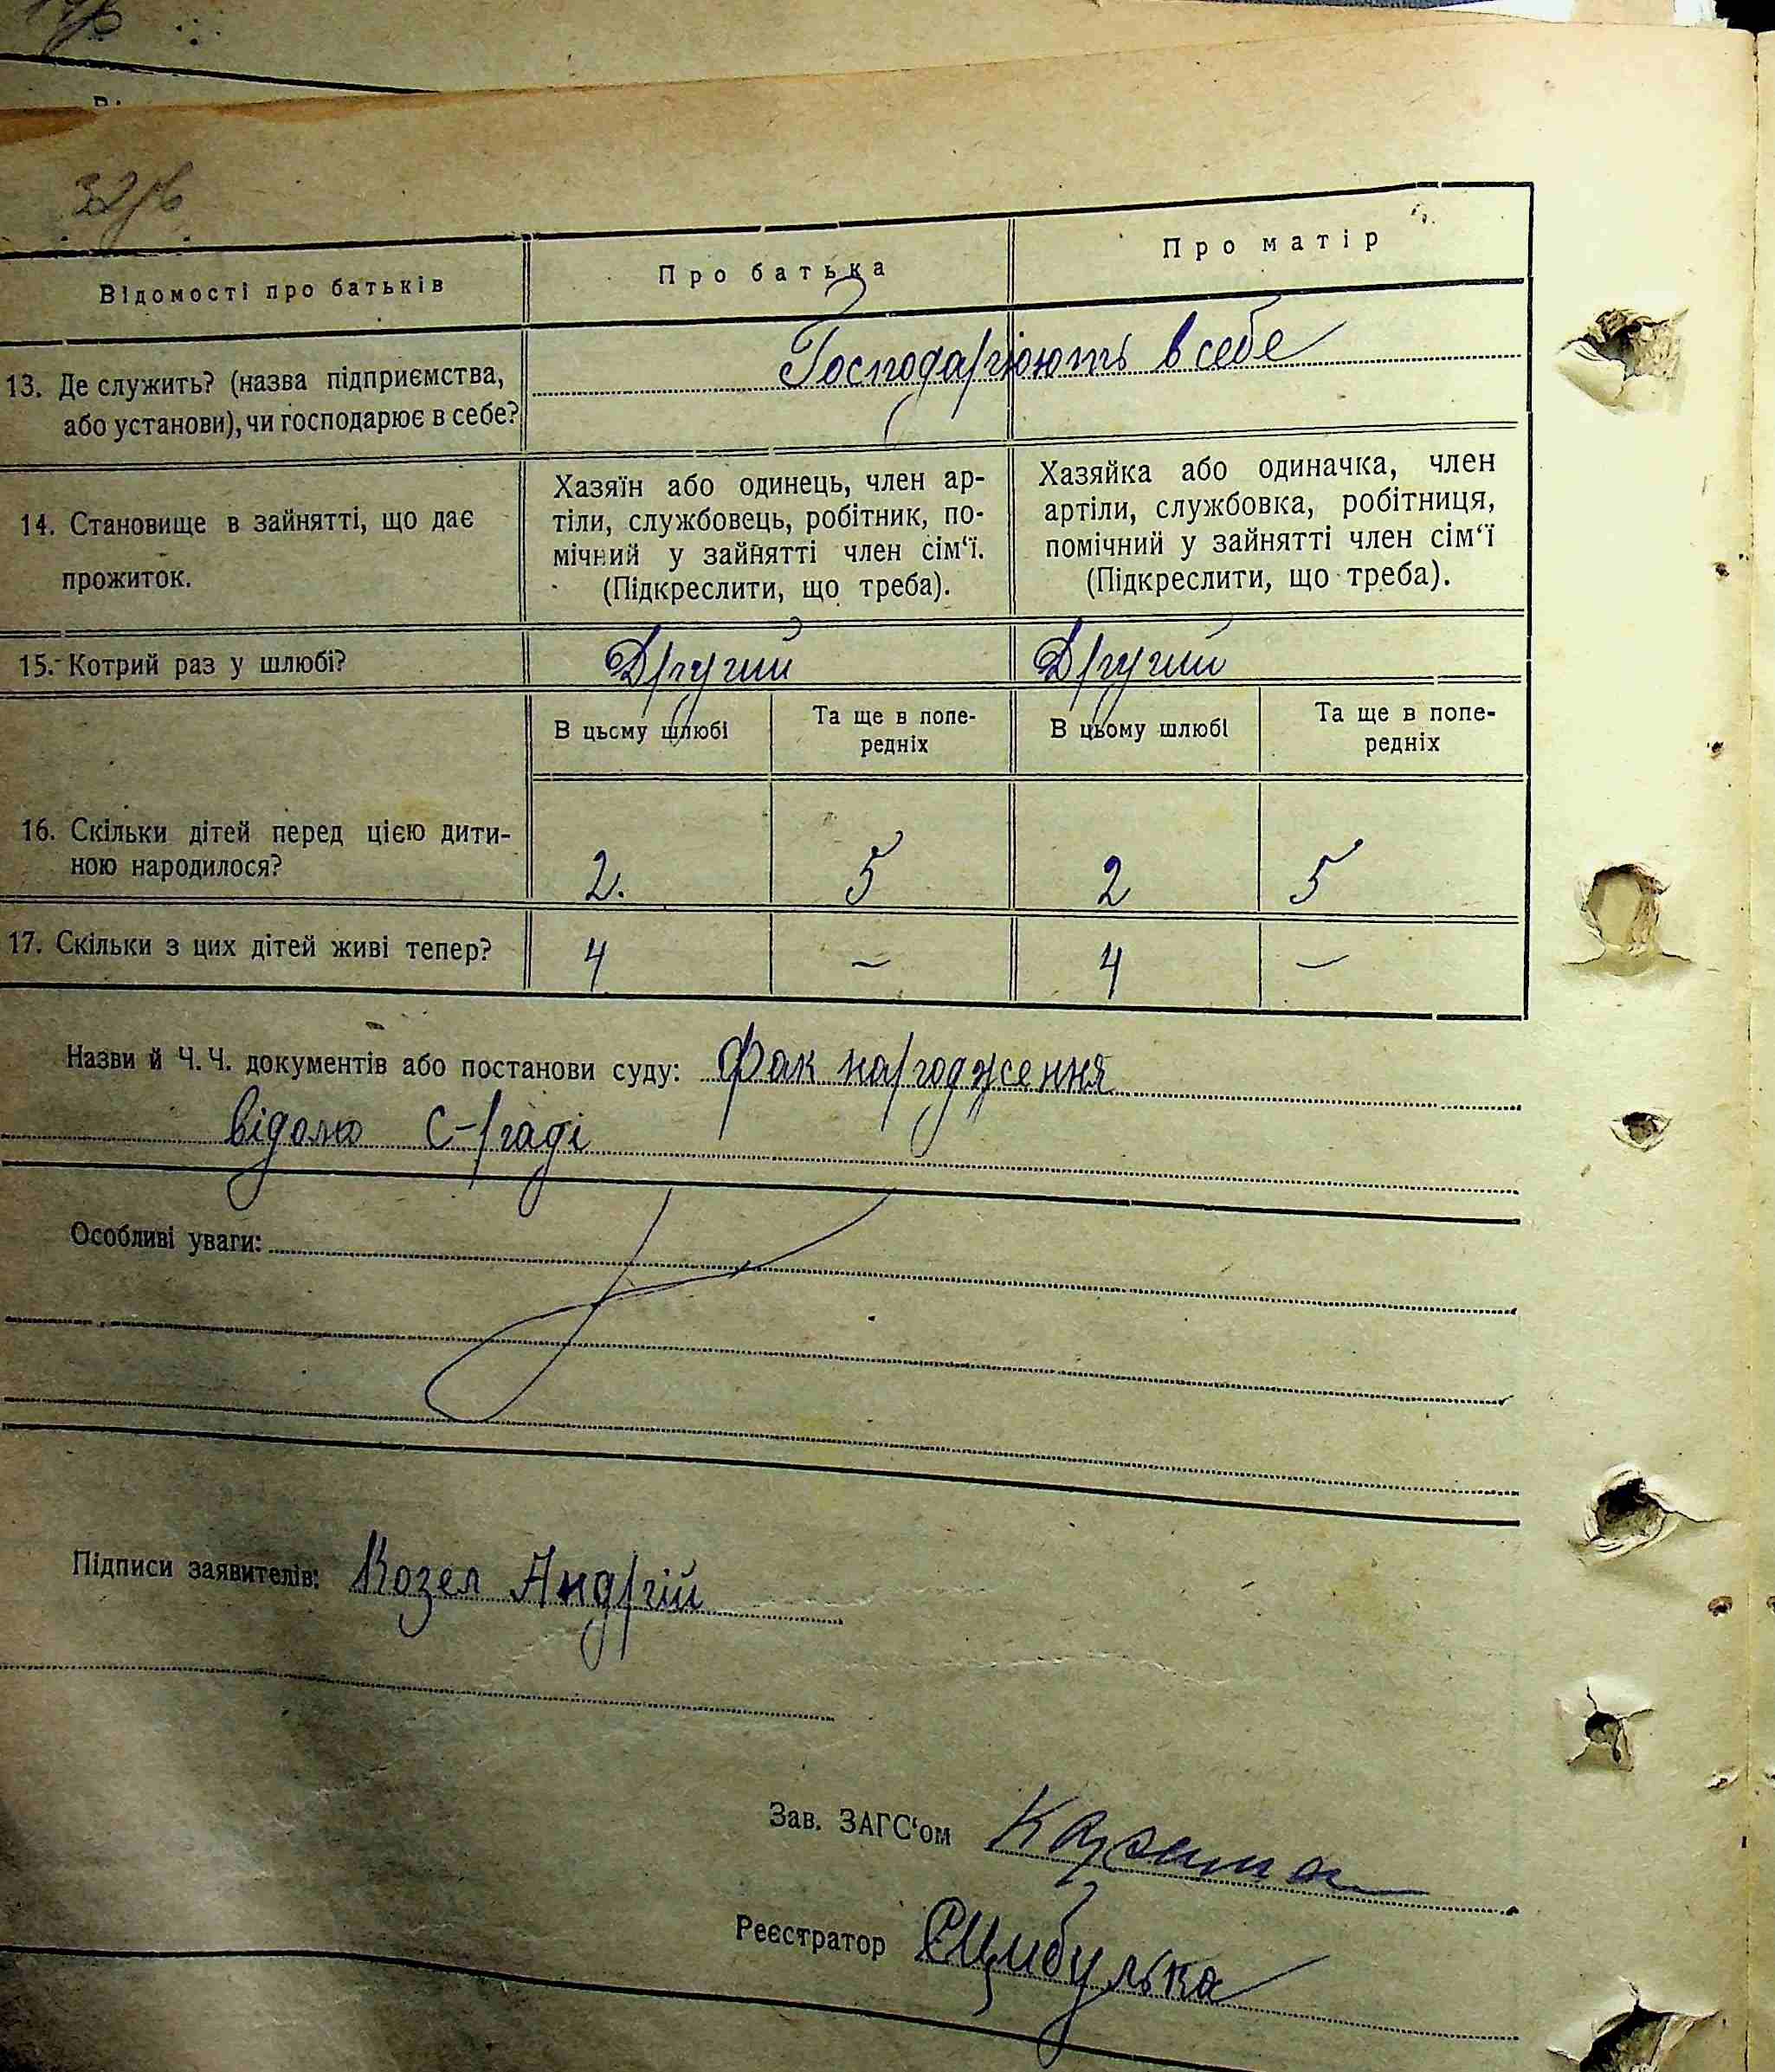 32/6
Відомості про батьків
Про батька
Про матір
13. Де служить? (назва підприємства,
або установи), чи господарює в себе?
Господарюють в себе
14. Становище в зайнятті, що дає
прожиток.
Хазяїн або одинець, член ар-
тіли, службовець, робітник, по-
мічний у зайнятті член сім‘ї.
(Підкреслити, що треба).
Хазяйка або одиначка, член
артіли, службовка, робітниця,
помічний у зайнятті член сім‘ї
(Підкреслити, що треба).
15. Котрий раз у шлюбі?
Другий
Другий
В цьому шлюбі
Та ще в попе-
редніх
В цьому шлюбі
Та ще в попе-
редніх
16. Скільки дітей перед цією дити-
ною народилося?
2. 5 2 5
17. Скільки з цих дітей живі тепер? 4 – 4 –
Назви й Ч. Ч. документів або постанови суду: Фак народження
відомо С-раді
Особливі уваги:
Підписи заявителів: Козел Андрій
Зав. ЗАГС‘ом
Реєстратор ЄЦибулька